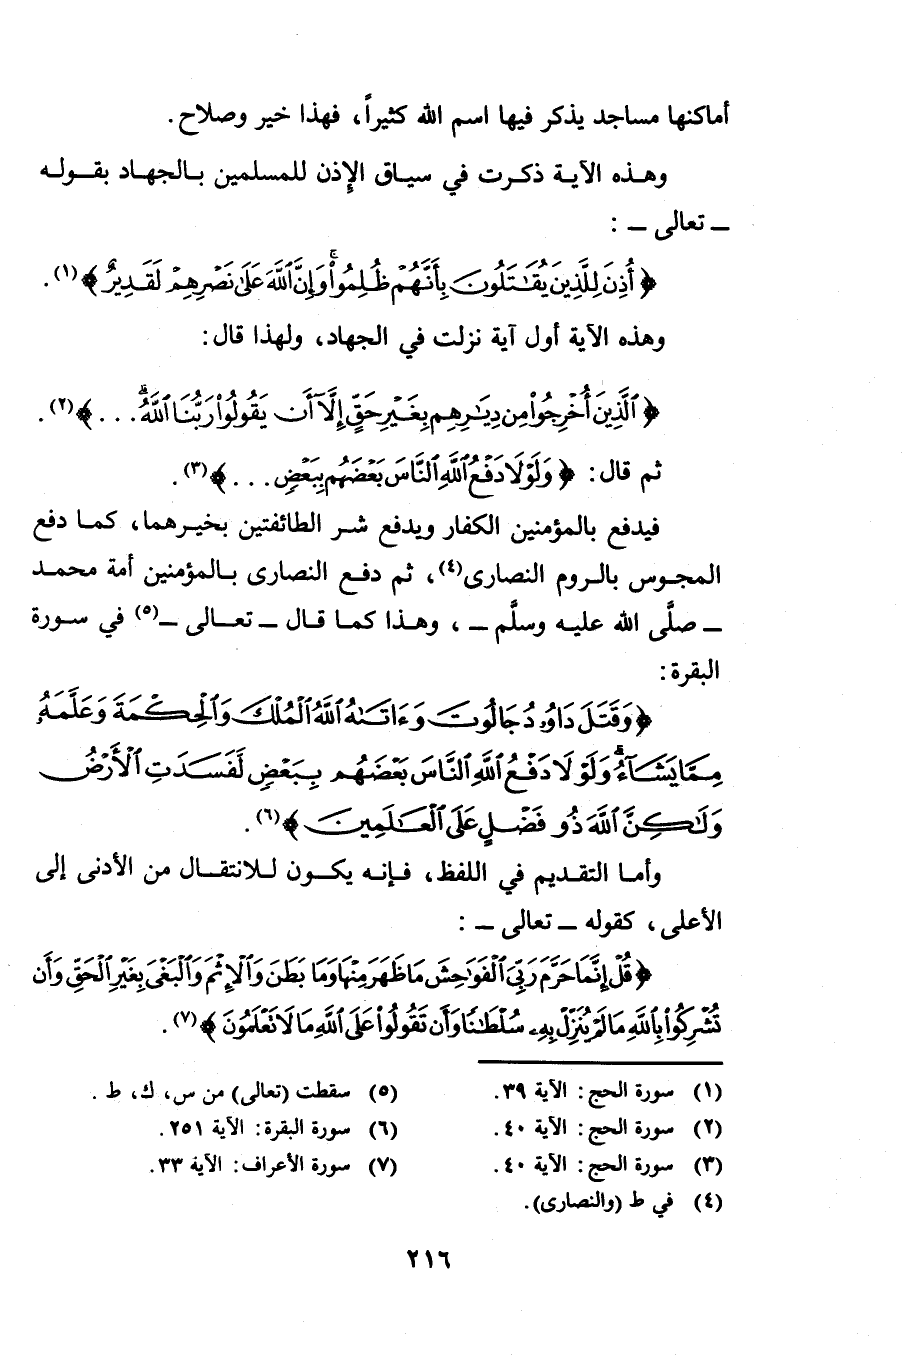 أماكنها مساجد يذكر فيها اسم الله كثيراً، فهذا خير وصلاح.
وهذه الآية ذكرت في سياق الإذن للمسلمين بالجهاد بقوله
ـ تعالى ـ :
﴿ أُذِنَ لِلَّذِينَ يُقَٰتَلُونَ بِأَنَّهُمْ ظُلِمُوا۟ ۚ وَإِنَّ ٱللَّهَ عَلَىٰ نَصْرِهِمْ لَقَدِيرٌ ﴾(١).
وهذه الآية أول آية نزلت في الجهاد، ولهذا قال:
﴿ ٱلَّذِينَ أُخْرِجُوا۟ مِن دِيَٰرِهِم بِغَيْرِ حَقٍّ إِلَّآ أَن يَقُولُوا۟ رَبُّنَا ٱللَّهُ ۗ ... ﴾(٢).
ثم قال: ﴿ وَلَوْلَا دَفْعُ ٱللَّهِ ٱلنَّاسَ بَعْضَهُم بِبَعْضٍ ... ﴾(٣).
فيدفع بالمؤمنين الكفار ويدفع شر الطائفتين بخيرهما، كما دفع
المجوس بالروم النصارى(٤)، ثم دفع النصارى بالمؤمنين أمة محمد
ـ صلَّى الله عليه وسلَّم ـ ، وهذا كما قال ـ تعالى ـ(٥) في سورة
البقرة:
﴿ وَقَتَلَ دَاوُۥدُ جَالُوتَ وَءَاتَىٰهُ ٱللَّهُ ٱلْمُلْكَ وَٱلْحِكْمَةَ وَعَلَّمَهُۥ
مِمَّا يَشَآءُ ۗ وَلَوْلَا دَفْعُ ٱللَّهِ ٱلنَّاسَ بَعْضَهُم بِبَعْضٍ لَّفَسَدَتِ ٱلْأَرْضُ
وَلَٰكِنَّ ٱللَّهَ ذُو فَضْلٍ عَلَى ٱلْعَٰلَمِينَ ﴾(٦).
وأما التقديم في اللفظ، فإنه يكون للانتقال من الأدنى إلى
الأعلى، كقوله ـ تعالى ـ :
﴿ قُلْ إِنَّمَا حَرَّمَ رَبِّىَ ٱلْفَوَٰحِشَ مَا ظَهَرَ مِنْهَا وَمَا بَطَنَ وَٱلْإِثْمَ وَٱلْبَغْىَ بِغَيْرِ ٱلْحَقِّ وَأَن
تُشْرِكُوا۟ بِٱللَّهِ مَا لَمْ يُنَزِّلْ بِهِۦ سُلْطَٰنًا وَأَن تَقُولُوا۟ عَلَى ٱللَّهِ مَا لَا تَعْلَمُونَ ﴾(٧).
(١) سورة الحج: الآية ٣٩.
(٢) سورة الحج: الآية ٤٠.
(٣) سورة الحج: الآية ٤٠.
(٤) في ط (والنصارى).
(٥) سقطت (تعالى) من س، ك، ط .
(٦) سورة البقرة: الآية ٢٥١.
(٧) سورة الأعراف: الآية ٣٣.
٢١٦